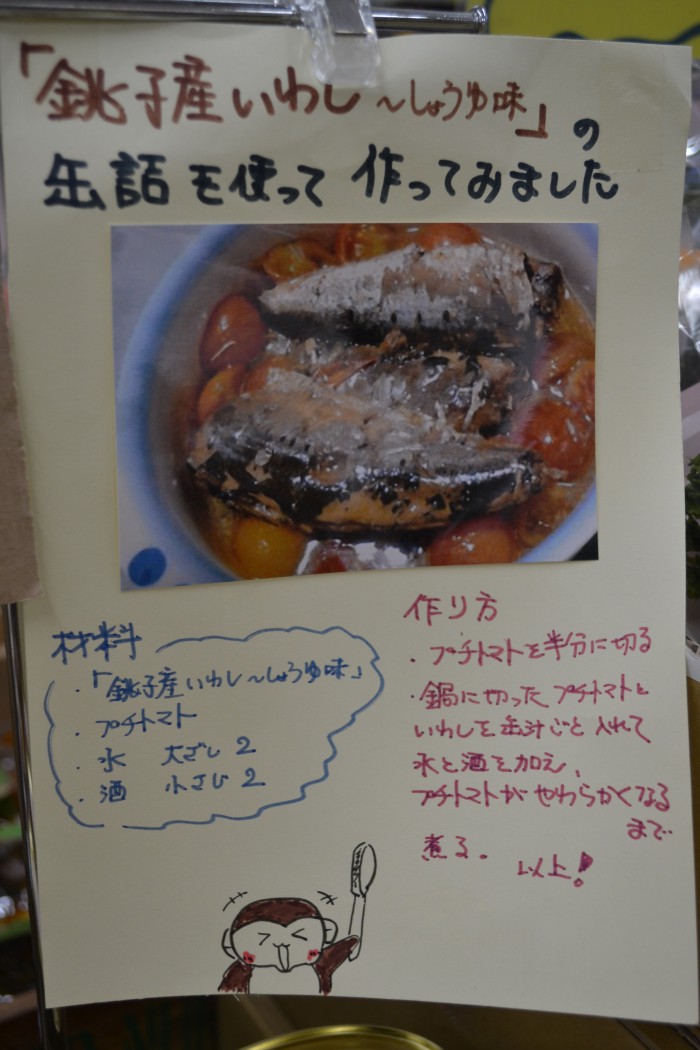 「銚子産いわし～しょうゆ味」の
缶詰を使って作ってみました
材料
・「銚子産いわし～しょうゆ味」
・プチトマト
・水 大さじ2
・酒 小さじ2
作り方
・プチトマトを半分に切る
・鍋に切ったプチトマトと
いわしを缶汁ごと入れて
水と酒を加え、
プチトマトがやわらかくなる
まで
煮る。 以上!